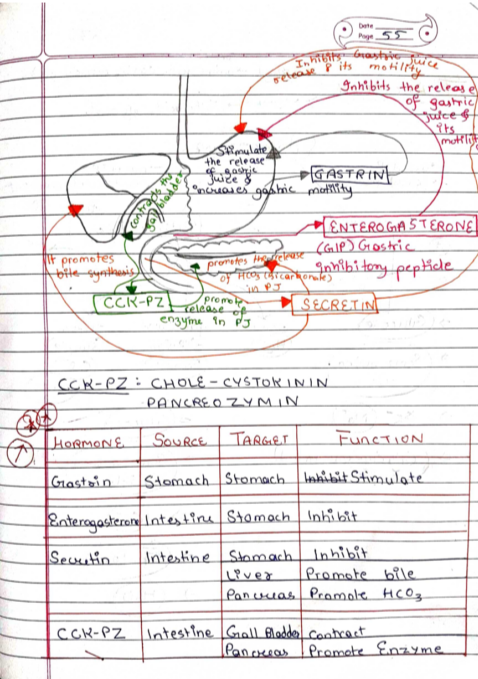 Date
Page 55
Inhibits Gastric juice
release & its motility
Inhibits the release
of gastric
juice &
its
motility
Stimulate
the release
of gastric
juice &
increases gastric motility
GASTRIN
contracts the
gall bladder
ENTEROGASTERONE
(GIP) Gastric
inhibitory peptide
It promotes
bile synthesis
promotes the release
of HCO3 (bicarbonate)
in PJ
CCK-PZ
promote
release of
enzyme in PJ
SECRETIN
CCK-PZ : CHOLE-CYSTOKININ
PANCREOZYMIN
HORMONE SOURCE TARGET FUNCTION
Gastrin Stomach Stomach Inhibit Stimulate
Enterogasterone Intestine Stomach Inhibit
Secretin Intestine Stomach Inhibit
Liver Promote bile
Pancreas Promote HCO3
CCK-PZ Intestine Gall Bladder Contract
Pancreas Promote Enzyme